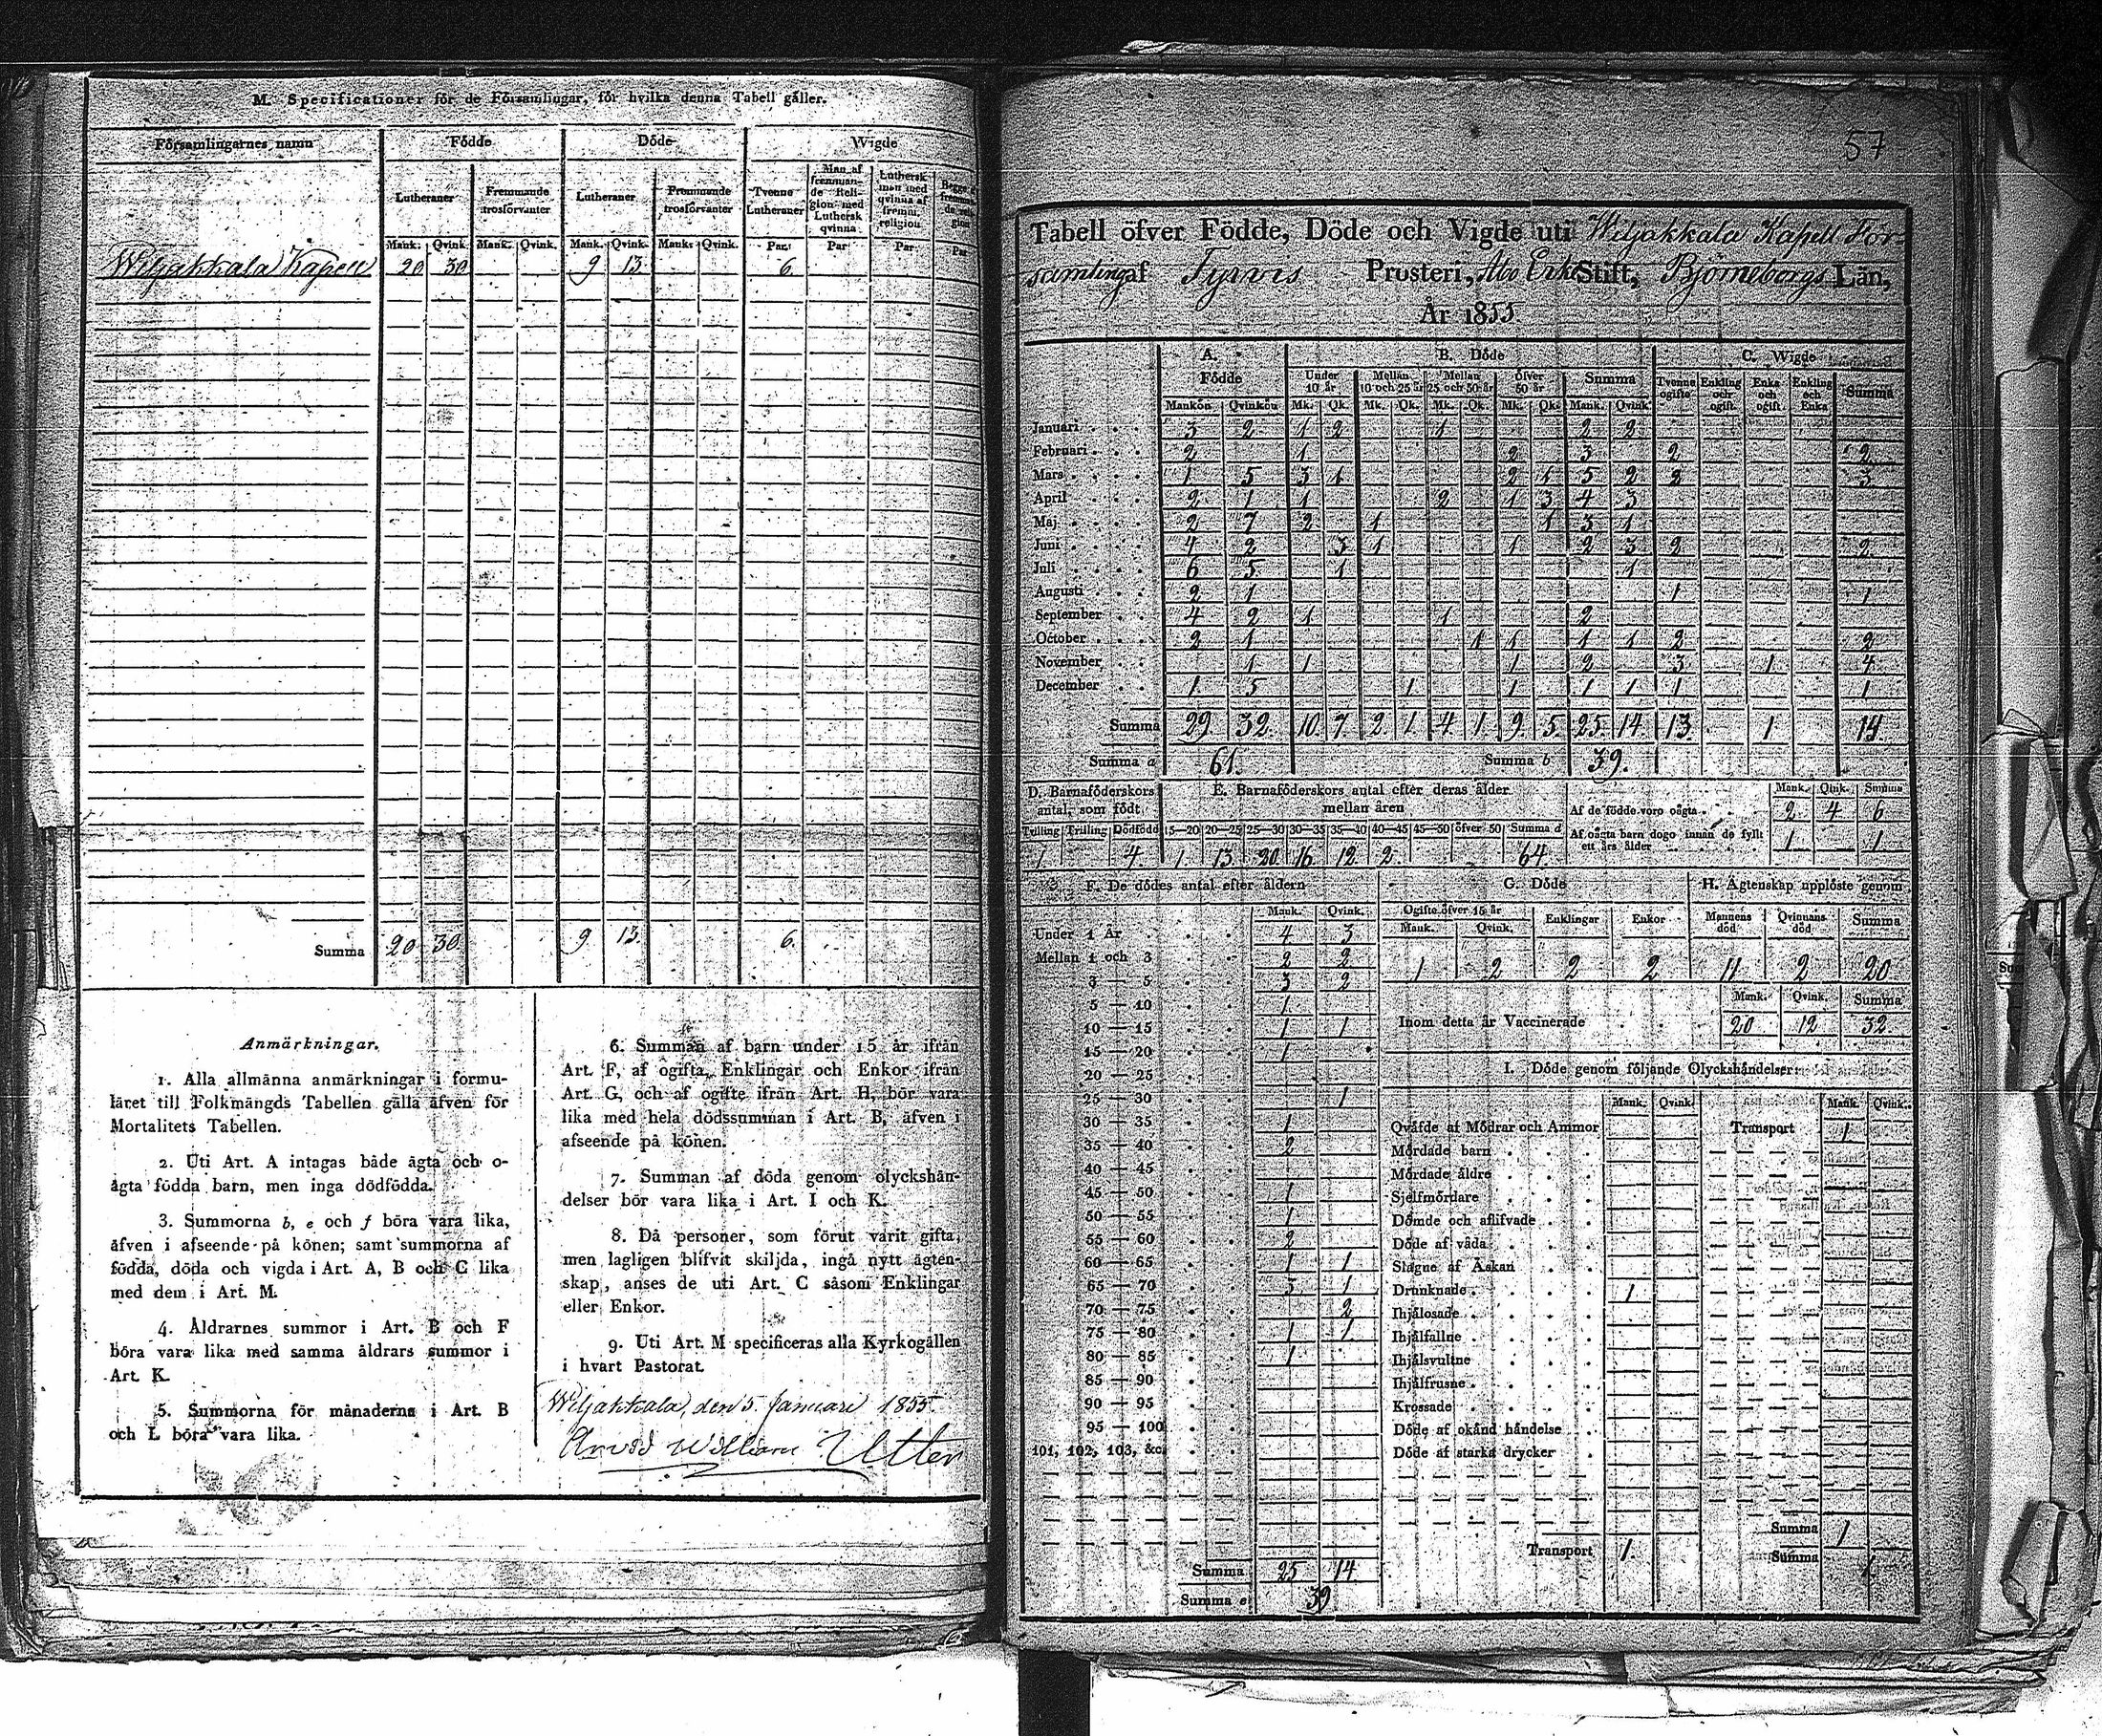 M. Specificationer för de Församlingar, för hvilka denna Tabell gäller.
Församlingarnes namn Födde Döde Wigde
Lutheraner Fremmande trosförvanter Lutheraner Fremmande trosförvanter Tvenne Lutheraner Man af fremmande Religion med Luthersk qvinna Luthersk man med qvinna af fremm. religion
Mank. Qvink. Mank. Qvink. Mank. Qvink. Mank. Qvink. Par. Par Par Par
Wiljakkala Kapell 20 30 9 13 6
Summa 20 30 9 13 6.
Anmärkningar.
1. Alla allmänna anmärkningar i formu-
läret till Folkmängds Tabellen gälla äfven för
Mortalitets Tabellen.
2. Uti Art. A intagas både ägta och o-
ägta födda barn, men inga dödfödda.
3. Summorna b, e och f böra vara lika,
äfven i afseende på könen; samt summorna af
födda, döda och vigda i Art. A, B och C lika
med dem i Art. M.
4. Åldrarnes summor i Art. B och F
böra vara lika med samma åldrars summor i
Art. K.
5. Summorna för månaderna i Art. B
och L böra vara lika.
6. Summan af barn under 15 år ifrån
Art. F, af ogifta, Enklingar och Enkor ifrån
Art. G, och af ogifte ifrån Art. H, bör vara
lika med hela dödssumman i Art. B, äfven i
afseende på könen.
7. Summan af döda genom olyckshän-
delser bör vara lika i Art. I och K.
8. Då personer, som förut varit gifta,
men lagligen blifvit skiljda, ingå nytt ägten-
skap, anses de uti Art. C såsom Enklingar
eller Enkor.
9. Uti Art. M specificeras alla Kyrkogällen
i hvart Pastorat.
Wiljakkala, den 5. Januari 1855.
Arvid William Utter
57
Tabell öfver Födde, Döde och Vigde uti Wiljakkala Kapell För-
samling af Tyrvis Prosteri, Åbo Erke Stift, Björneborgs Län,
År 1855
A. Födde B. Döde C. Wigde
Under 10 år Mellan 10 och 25 år Mellan 25 och 50 år Öfver 50 år Summa Tvenne ogifte Enkling och ogift. Enka och ogift Enkling och Enka Summa
Mankön Qvinkön Mk. Qk. Mk. Qk. Mk. Qk. Mk. Qk. Mank. Qvink.
Januari 3 2 1 2 1 2 2
Februari 2 1 2 3 2 2
Mars 1 5 3 1 2 1 5 2 2 3
April 2 1 1 2 1 3 4 3
Maj 2 7 2 1 1 3 1
Juni 4 2 3 1 1 2 3 2 2
Juli 6 5 1 1
Augusti 2 1 1 1
September 4 2 1 1 2
October 2 1 1 1 1 1 2 2
November 1 1 1 2 3 1 4
December 1 5 1 1 1 1 1 1
Summa 29 32 10 7 2 1 4 1 9 5 25 14 13 1 14
Summa a 61. Summa b 39.
D. Barnaföderskors antal, som födt E. Barnaföderskors antal efter deras ålder mellan åren
Tvilling Trilling Dödfödd 15—20 20—25 25—30 30—35 35—40 40—45 45—50 öfver 50 Summa d
1 4 1 13 20 16 12 2 64
Mank. Qvink. Summa
Af de födde voro oägta 2 4 6
Af oägta barn dogo innan de fyllt ett års ålder 1 1
F. De dödes antal efter åldern
Mank. Qvink.
Under 1 År 4 3
Mellan 1 och 3 2 2
3 — 5 3 2
5 — 10 1
10 — 15 1 1
15 — 20 1
20 — 25
25 — 30 1
30 — 35 1
35 — 40 2
40 — 45
45 — 50 1
50 — 55 1
55 — 60 2
60 — 65 1 1
65 — 70 3 1
70 — 75 2
75 — 80 1 1
80 — 85 1
85 — 90
90 — 95
95 — 100
101, 102, 103, &c.
Summa 25 14
Summa e 39
G. Döde H. Ägtenskap upplöste genom
Ogifte öfver 15 år Enklingar Enkor Mannens död Qvinnans död Summa
Mank. Qvink.
1 2 2 2 11 2 20
Mank. Qvink. Summa
Inom detta år Vaccinerade 20 12 32
I. Döde genom följande Olyckshändelser:
Mank. Qvink. Mank. Qvink.
Qväfde af Mödrar och Ammor Transport 1
Mördade barn
Mördade äldre
Sjelfmördare
Dömde och aflifvade
Döde af våda
Slagne af Åskan
Drunknade 1
Ihjälosade
Ihjälfallne
Ihjälsvultne
Ihjälfrusne
Krossade
Döde af okänd händelse
Döde af starka drycker
Summa 1
Transport 1. Summa 1